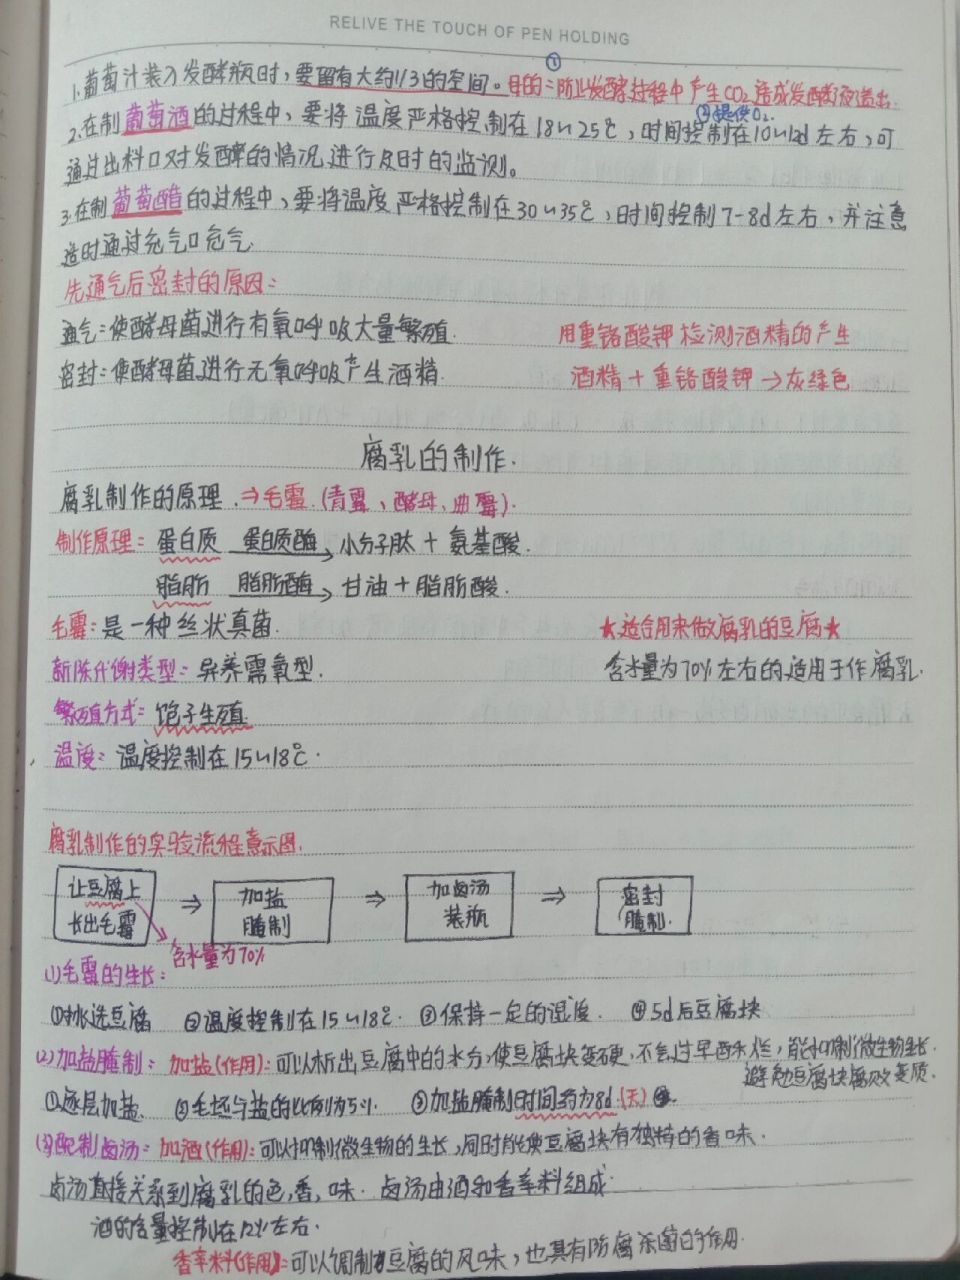 RELIVE THE TOUCH OF PEN HOLDING
1.葡萄汁装入发酵瓶时,要留有大约1/3的空间。目的:①防止发酵过程中产生CO₂造成发酵液溢出.
②提供O₂.
2.在制葡萄酒的过程中,要将温度严格控制在18~25℃,时间控制在10~12d左右,可
通过出料口对发酵的情况进行及时的监测。
3.在制葡萄醋的过程中,要将温度严格控制在30~35℃,时间控制7-8d左右,并注意
适时通过充气口充气.
先通气后密封的原因:
通气:使酵母菌进行有氧呼吸大量繁殖. 用重铬酸钾检测酒精的产生
密封:使酵母菌进行无氧呼吸产生酒精. 酒精+重铬酸钾→灰绿色
腐乳的制作.
腐乳制作的原理.⇒毛霉.(青霉、酵母、曲霉).
制作原理:蛋白质 蛋白质酶→小分子肽+氨基酸.
脂肪 脂肪酶→甘油+脂肪酸.
毛霉:是一种丝状真菌. ★适合用来做腐乳的豆腐★
新陈代谢类型:异养需氧型. 含水量为70%左右的适用于作腐乳.
繁殖方式:孢子生殖
温度:温度控制在15~18℃.
腐乳制作的实验流程意示图.
让豆腐上长出毛霉 ⇒ 加盐腌制 ⇒ 加卤汤装瓶 ⇒ 密封腌制.
含水量为70%
(1)毛霉的生长:
①挑选豆腐 ②温度控制在15~18℃. ③保持一定的湿度. ④5d后豆腐块
(2)加盐腌制:加盐(作用):可以析出豆腐中的水分,使豆腐块变硬,不会过早酥烂,能抑制微生物生长.
避免豆腐块腐败变质.
①逐层加盐. ②毛坯与盐的比例为5:1. ③加盐腌制时间约为8d.(天)
(3)配制卤汤:加酒(作用):可以抑制微生物的生长,同时能使豆腐块有独特的香味.
卤汤直接关系到腐乳的色,香,味. 卤汤由酒和香辛料组成.
酒的含量控制在12%左右.
香辛料(作用):可以调制豆腐的风味,也具有防腐杀菌的作用.